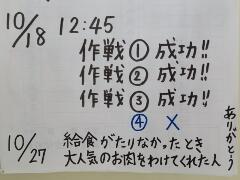 10/18 12:45
作戦①成功!!
作戦②成功!!
作戦③成功!!
④ X
10/27 給食がたりなかったとき
大人気のお肉をわけてくれた人
ありがとう